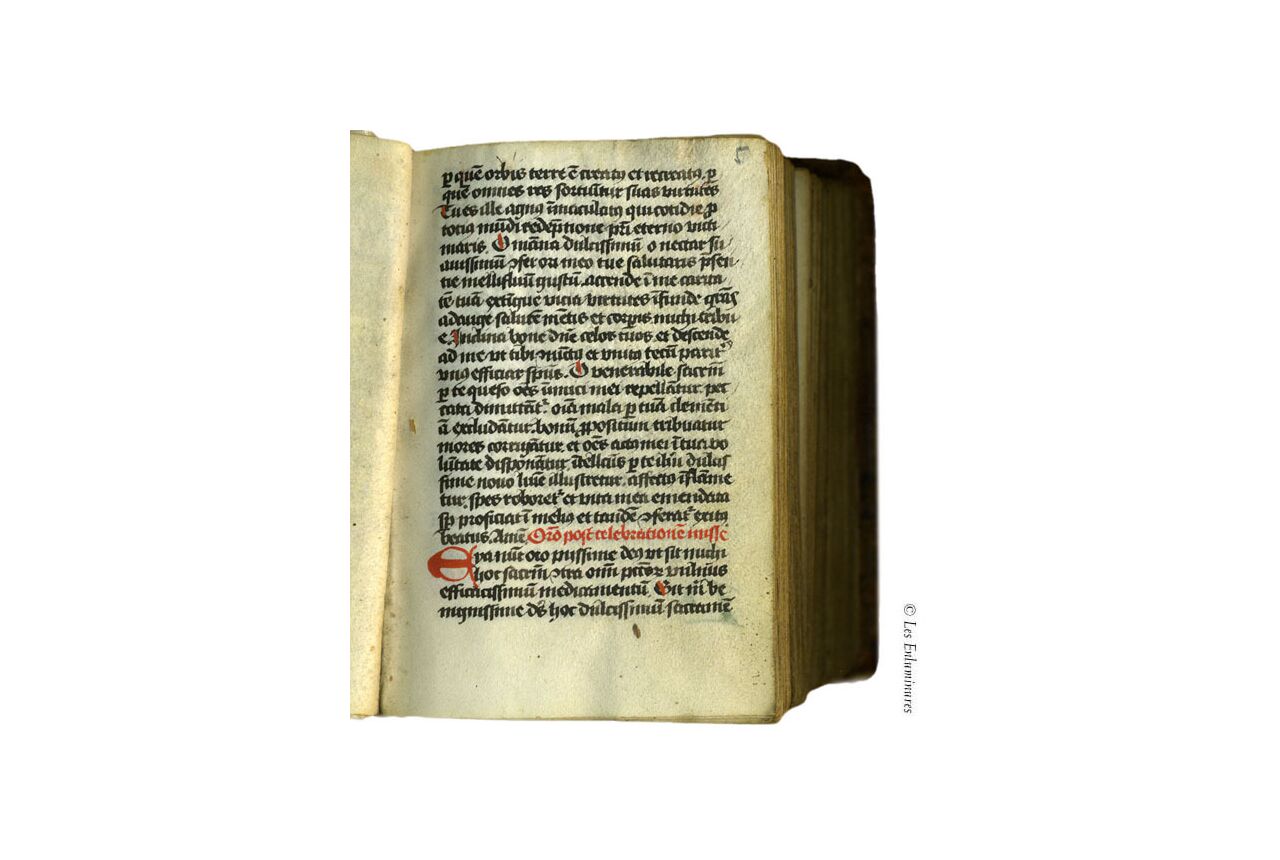 5
ꝑ quē orbis terre ē creatꝰ et recreatꝰ ꝑ
quē omnes res sortiūtur suas virtutes
Tu es ille agnꝰ īmaculatꝰ qui cotidie ꝓ
totiꝰ mūdi redēptione pri eterno victi
maris. O māna dulcissimū o nectar su
auissimū ꝯfer ori meo tue salutaris pn̄sen
tie mellifluū gustū. accende ī me carita
tē tuā extīgue vicia virtutes īfunde grās
adauge salutē mētis et corꝑis michi tribu
e. Inclina bone dn̄e celos tuos et descende
ad me vt tibi ꝯiūctꝰ et vnitꝰ tecū pariter
vnꝰ efficiar spūs. O venerabile sacrm̄
ꝑ te queso oēs inimici mei repellātur pec
cata dimittāt᷑. oīa mala ꝑ tuā clemēti
ā excludātur. bonū ꝓpositum tribuatur
mores corrigātur et oēs actꝰ mei ī tua vo
lūtate disponātur. ītellcūs ꝑ te ihū dulcis
sime nouo luīe illustretur. affectꝰ īflāme
tur. spes roboret᷑ et vita mea emendata
sꝑ proficiat ī meliꝰ et tandē ꝯferat᷑ exitꝰ
beatus. Amē. Orō post celebrationē misse
Eya nūc oro piissime deꝰ vt sit michi
hoc sacrm̄ ꝯtra om̄ peccōr vulnus
efficacissimū medicamentū. Sit m̄ be
nignissime ds̄ hoc dulcissimū sacramē
© Les Enluminures